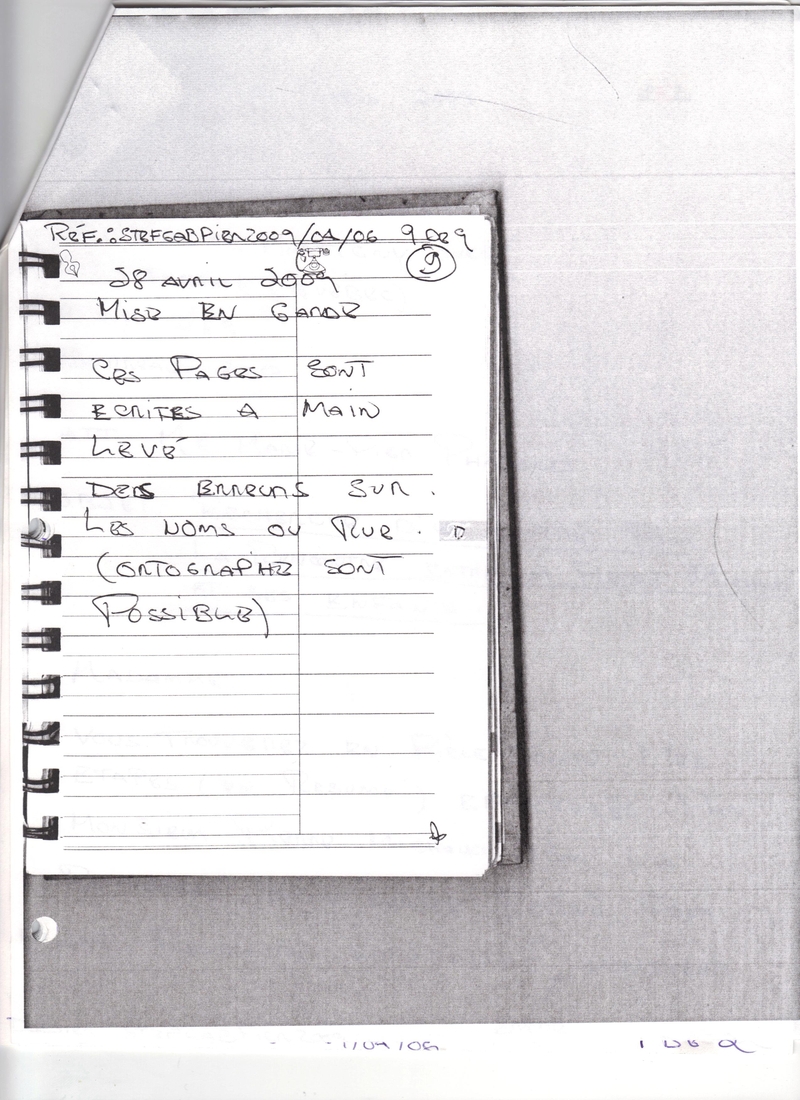 RÉF.: STEFGABPIER2009/04/06 9 DE 9
9
28 AVRIL 2009
MISE EN GARDE
CES PAGES SONT
ECRITES A MAIN
LEVÉ
DES ERREURS SUR.
LES NOMS OU RUE.
(ORTOGRAPHE SONT
POSSIBLE)